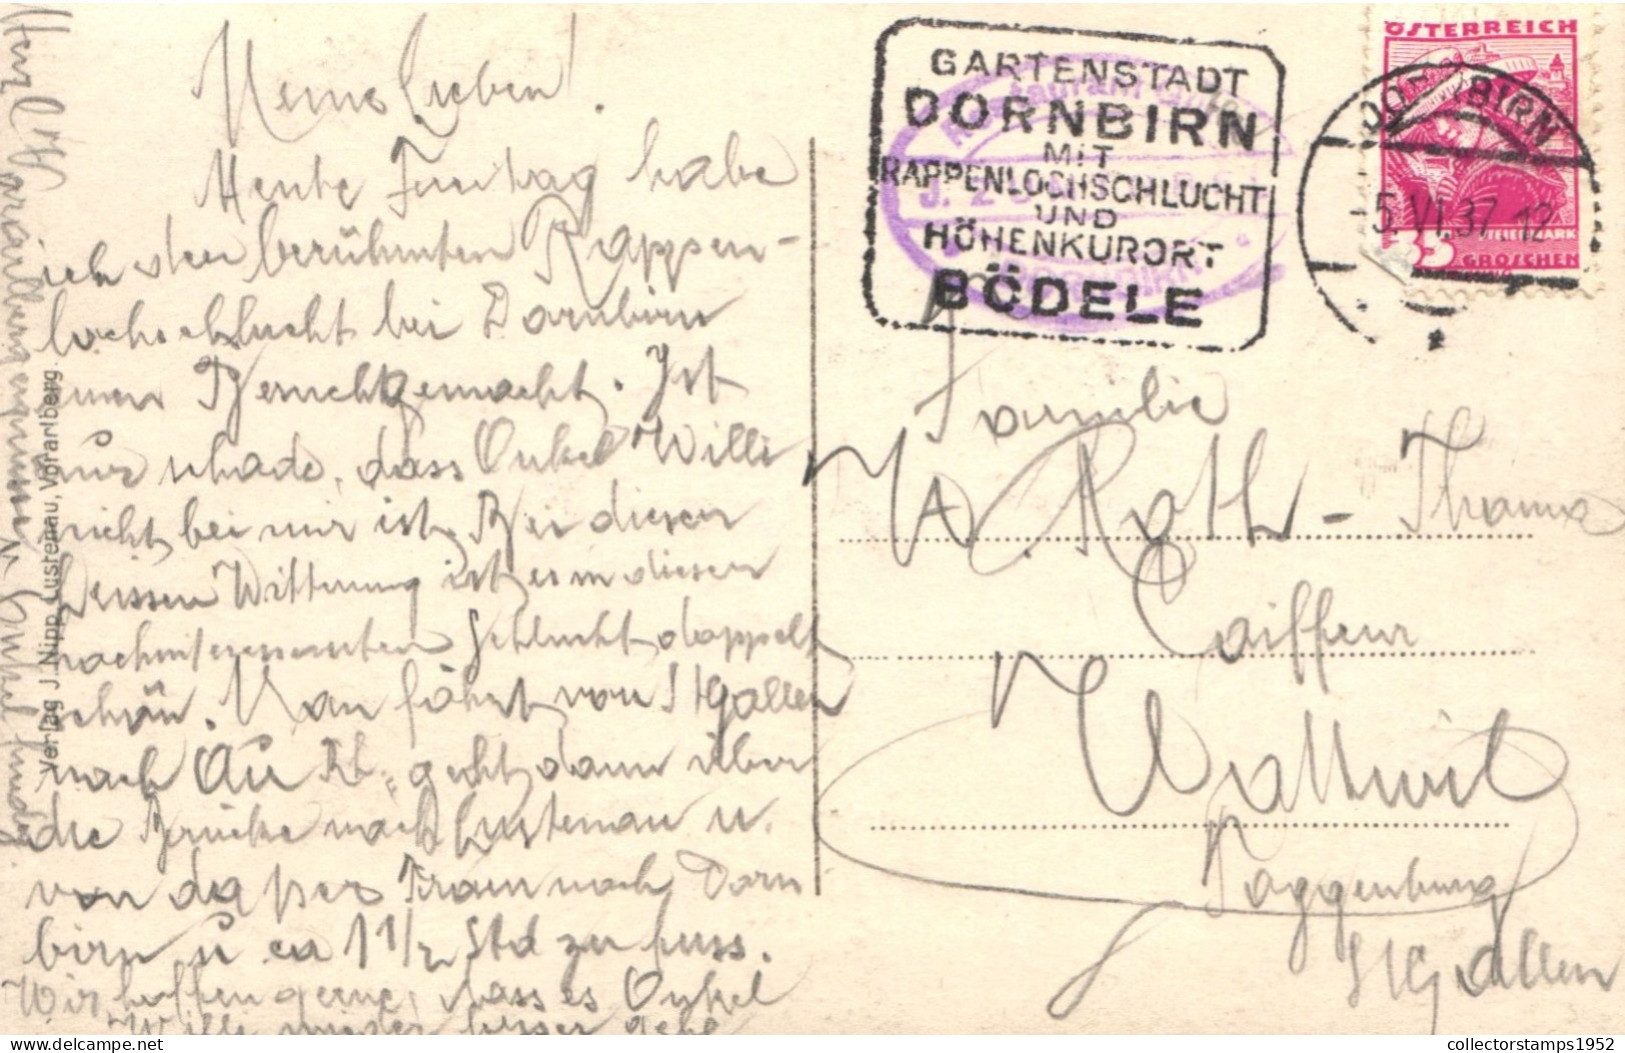 Meine Lieben!
Heute Freitag habe
ich der berühmten Rappen-
lochschlucht bei Dornbirn
einen Besuch gemacht. Ist
nur schade, dass Onkel Willi
nicht bei mir ist. Bei dieser
heissen Witterung ist es in dieser
hochinteressanten Schlucht doppelt
schön. Man fährt von St Gallen
nach Au Rh., geht dann über
die Brücke nach Lustenau u.
von da per Tram nach Dorn
birn u ca 1 1/2 Std zu fuss.
Wir hoffen gerne, dass es Onkel
Willi wieder besser geht
Herzl.
Verlag J. Nipp, Lustenau, Vorarlberg.
GARTENSTADT
DORNBIRN
MIT
RAPPENLOCHSCHLUCHT
UND
HÖHENKURORT
BÖDELE
ÖSTERREICH
DORNBIRN
-5.VI.37.12
STEIERMARK
35 GROSCHEN
Familie
A. Roth - Thoma
Coiffeur
Wattwil
Toggenburg
St Gallen
Delcampe.net
collectorstamps1952